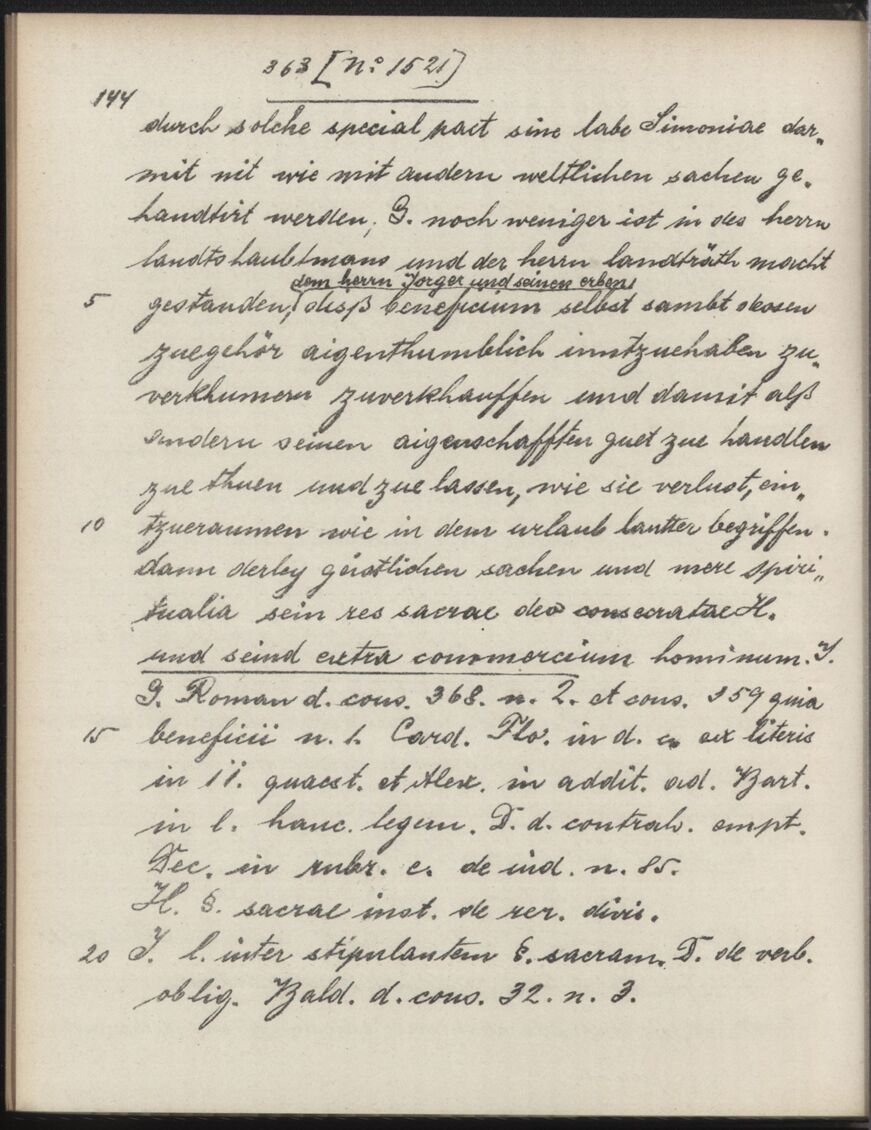 363 [No 1521]
144
durch solche special pact sine labe Simoniae dar„
mit nit wie mit andern weltlichen sachen ge„
handtirt werden, G. noch weniger ist in des herrn
landtshaubtmans und der herrn landträth macht
dem herrn Jörger und seinen erben
5 gestanden, diß beneficium selbst sambt dessen
zuegehör aigenthumblich inntzuehaben zu„
verkhumern zuverkhauffen und damit alß
andern seinen aigenschafften guet zue handlen
zue thuen und zue lassen, wie sie verlust, ein„
10 tzueraumen wie in dem urlaub lautter begriffen.
dann derley geistlichen sachen und mere spiri„
tualia sein res sacrae deo consecratae H.
und seind extra commercium hominum. I.
G. Roman d. cons. 368. n. 2. et cons. 359 quia
15 beneficii n. 1. Card. Flo. in d. c. ex literis
in 11. quaest. et Alex. in addit. ad. Bart.
in l. hanc. legem. D. d. contrah. empt.
Dec. in rubr. c. de iud. n. 85.
H. §. sacrae inst. de rer. divis.
20 I. l. inter stipulantem §. sacram. D. de verb.
oblig. Bald. d. cons. 32. n. 3.